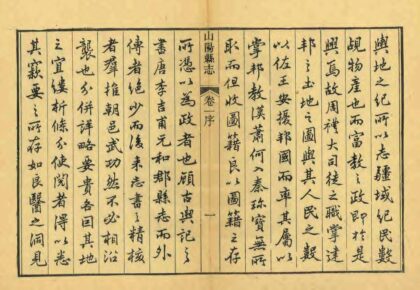 輿地之紀所以志疆域紀民數
覘物產也而富教之政即於是
興焉故周禮大司徒之職掌建
邦之土地之圖與其人民之數
以佐王安擾邦國而率其屬以
掌邦教漢蕭何入秦珍寶無所
取而但收圖籍良以圖籍之存
山陽縣志
卷一序
一
所憑以為政者也顧古輿記之
書唐李吉甫元和郡縣志而外
傳者絕少而後來志書之精核
者羣推朝邑武功然不必相沿
襲也分併詳略要貴各因其地
之宜縷析條分使閱者得以悉
其窾要之所存如良醫之洞見